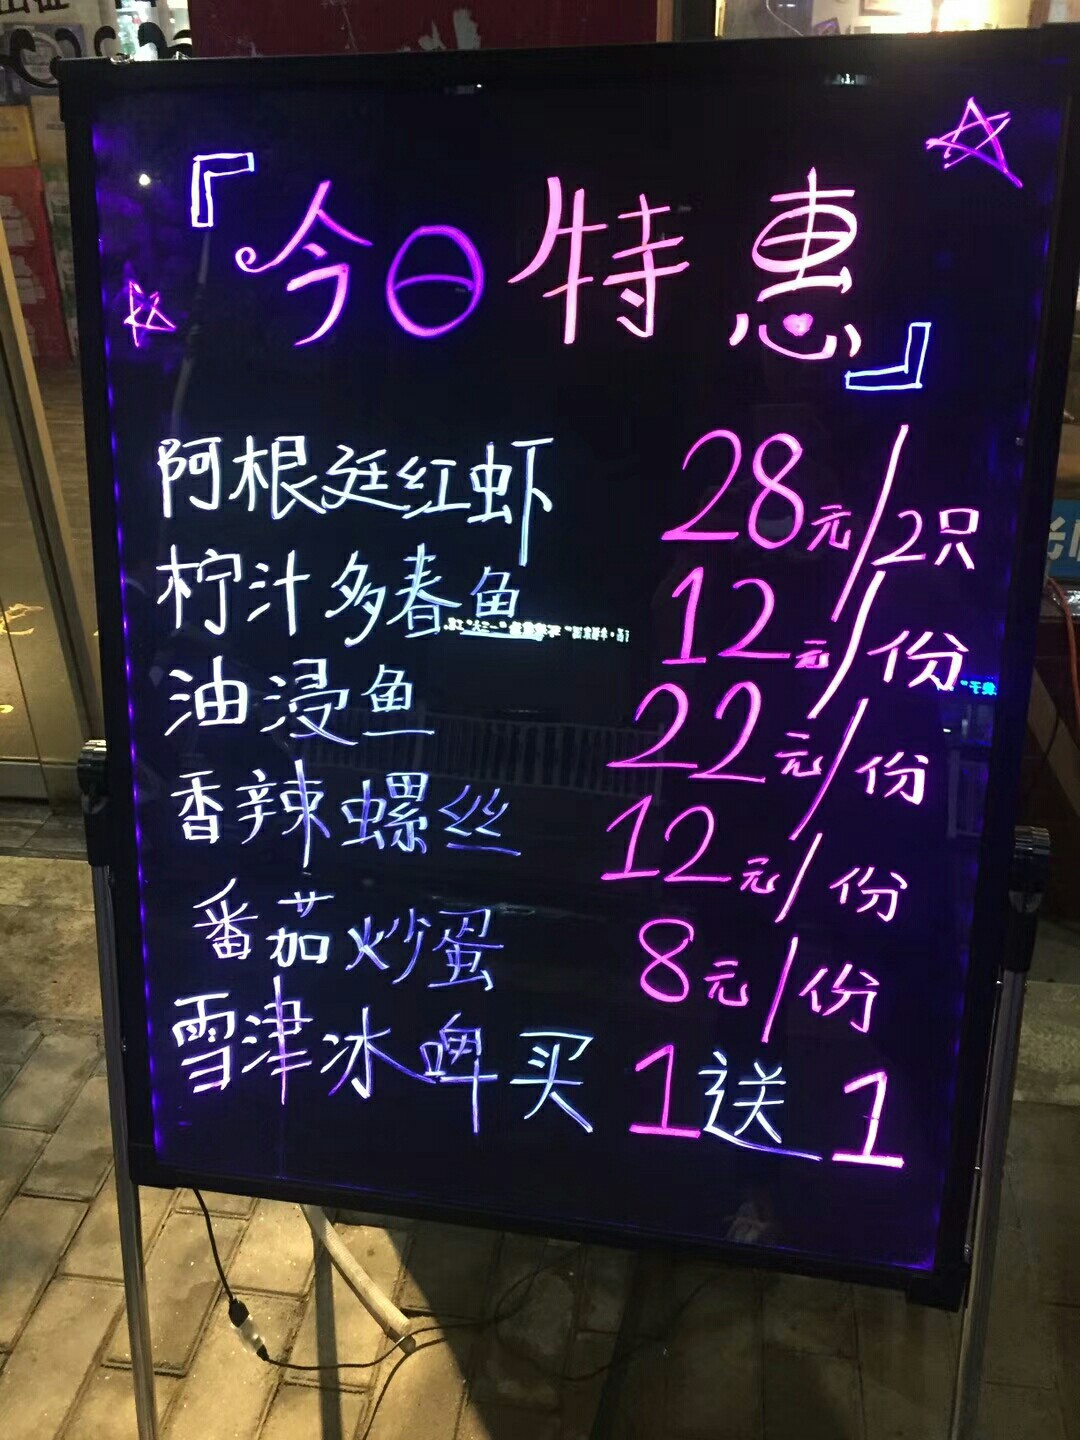 『今日特惠』
阿根廷红虾 28元/2只
柠汁多春鱼 12元/份
油浸鱼 22元/份
香辣螺丝 12元/份
番茄炒蛋 8元/份
雪津冰啤买1送1